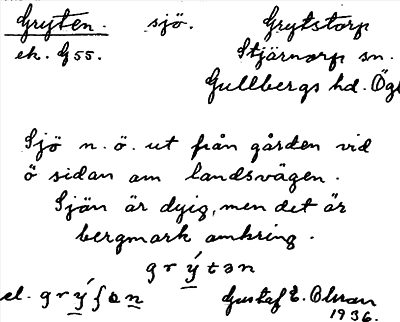 Gryten. sjö. Grytstorp
ek. G55. Stjärnorp sn.
Gullbergs hd. Ögl
Sjö n. ö. ut från gården vid
ö sidan om landsvägen.
Sjön är dyig, men det är
bergmark omkring.
grýtən
el. grýʃən Gustaf E. Olsson
1936.